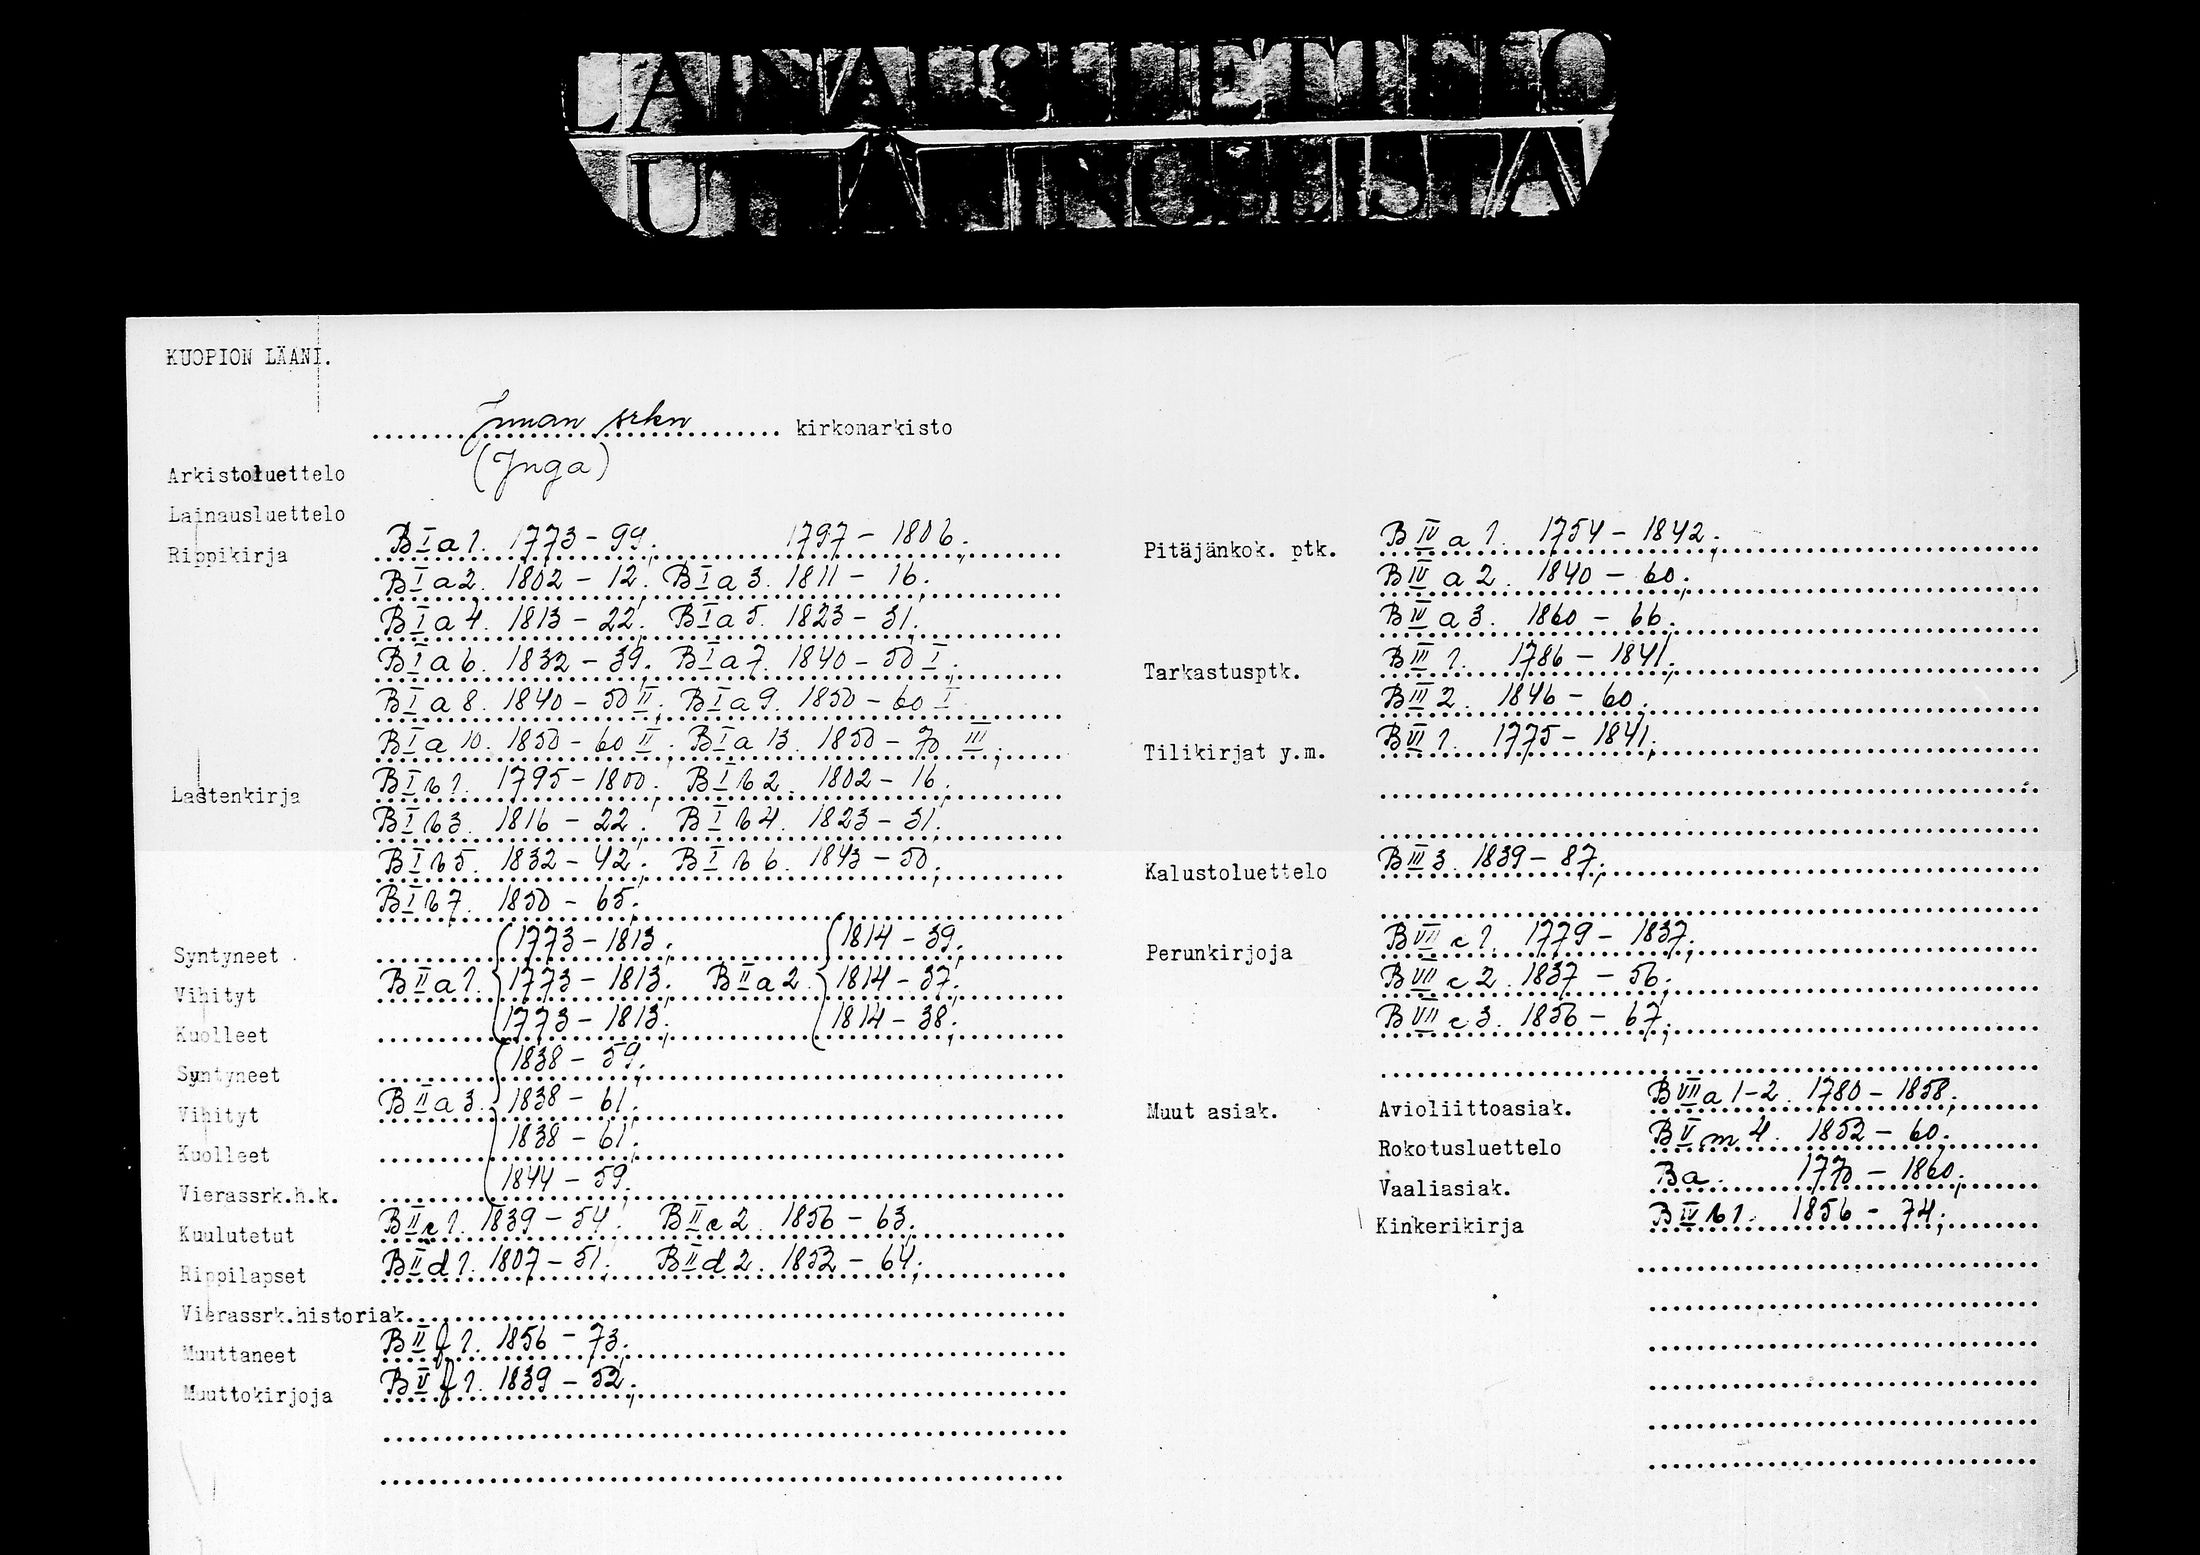 LAINAUSLUETTELO
UTLÅNINGSLISTA
KUOPION LÄÄNI.
Junan srkn kirkonarkisto
(Juga)
Arkistoluettelo
Lainausluettelo
Rippikirja B I a 1. 1773 - 99; 1797 - 1806;
B I a 2. 1802 - 12; B I a 3. 1811 - 16;
B I a 4. 1813 - 22; B I a 5. 1823 - 31;
B I a 6. 1832 - 39; B I a 7. 1840 - 50 I;
B I a 8. 1840 - 50 II; B I a 9. 1850 - 60 I
B I a 10. 1850 - 60 II; B I a 13. 1850 - 70 III;
Lastenkirja B I b 1. 1795 - 1800; B I b 2. 1802 - 16;
B I b 3. 1816 - 22; B I b 4. 1823 - 31;
B I b 5. 1832 - 42; B I b 6. 1843 - 50;
B I b 7. 1850 - 65;
Syntyneet 1773 - 1813; 1814 - 39;
Vihityt B II a 1. 1773 - 1813; B II a 2. 1814 - 37;
Kuolleet 1773 - 1813; 1814 - 38;
Syntyneet 1838 - 59;
Vihityt B II a 3. 1838 - 61;
Kuolleet 1838 - 61;
Vierassrk.h.k. 1844 - 59;
Kuulutetut B II c 1. 1839 - 54; B II c 2. 1856 - 63;
Rippilapset B II d 1. 1807 - 51; B II d 2. 1852 - 64;
Vierassrk.historiak.
Muuttaneet B II f 1. 1856 - 73;
Muuttokirjoja B V f 1. 1839 - 52;
Pitäjänkok. ptk. B IV a 1. 1754 - 1842;
B IV a 2. 1840 - 60;
B IV a 3. 1860 - 66;
Tarkastusptk. B III 1. 1786 - 1841;
B III 2. 1846 - 60;
Tilikirjat y.m. B VI 1. 1775 - 1841;
Kalustoluettelo B III 3. 1839 - 87;
Perunkirjoja B VII c 1. 1779 - 1837;
B VII c 2. 1837 - 56;
B VII c 3. 1856 - 67;
Muut asiak. Avioliittoasiak. B VII a 1-2. 1780 - 1858;
Rokotusluettelo B V m 4. 1852 - 60;
Vaaliasiak. B a. 1770 - 1860;
Kinkerikirja B IV b 1. 1856 - 74;